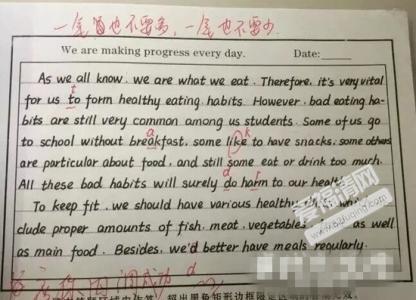 一笔也不要多，一笔也不要少
We are making progress every day. Date:
As we all know, we are what we eat. Therefore, it's very vital
for us to form healthy eating habits. However, bad eating ha-
bits are still very common among us students. Some of us go
to school without breakfast, some like to have snacks, some others
are particular about food, and still some eat or drink too much.
All these bad habits will surely do harm to our health.
To keep fit, we should have various healthy
clude proper amounts of fish, meat, vegetables as well
as main food. Besides, we'd better have meals regularly.